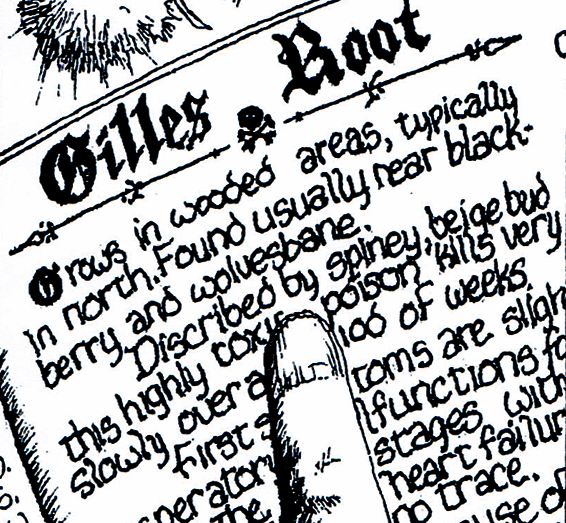 Gilles Root
Grows in wooded areas, typically
in north. Found usually near black-
berry and wolvesbane.
Discribed by spiney, beige bud
this highly toxi poison kills very
slowly over a iod of weeks.
First s toms are sligh
perator lfunctions fo
the stages, with
heart failur
no trace.
use of